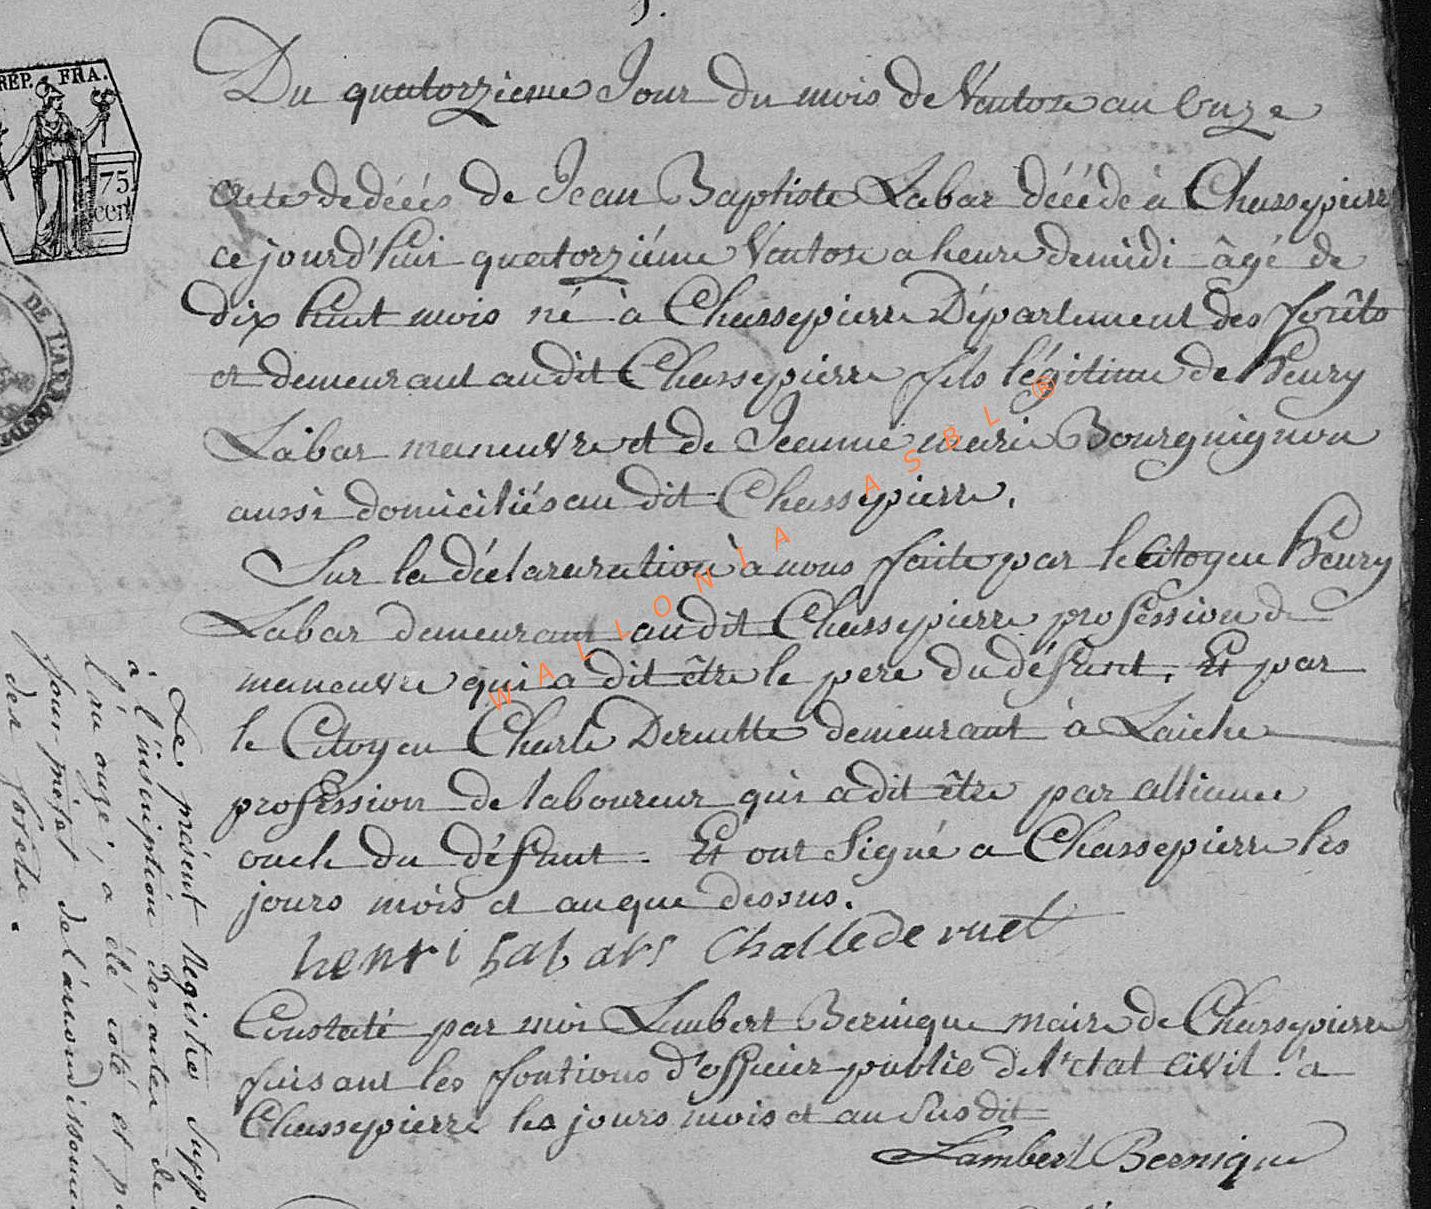 Du quatorzieme Jour du mois de Ventose an Onze
acte de décés de Jean Baptiste Labar décédé à Chassepierre
ce jourd'hui quatorziéme Ventose a heure de midi âgé de
dix huit mois né à Chassepierre Département des forêts
et demeurant audit Chassepierre fils légitime de Henry
Labar maneuvre et de Jeanne marie Bourguignon
aussi domiciliés au dit Chassepierre.
Sur la déclararation à nous faite par le Citoyen Henry
Labar demeurant audit Chassepierre profession de
maneuvre qui a dit être le pere du défunt. Et par
le Citoyen Charle Deruette demeurant à Laiche
profession de laboureur qui a dit être par alliance
oncle du défunt. Et ont Signé a Chassepierre les
jours mois et an que dessus.
henri Labars Challe de ruet
Constaté par moi Lambert Bernique maire de Chassepierre
faisant les fontions d'officier public de l'état civil. à
Chassepierre les jours mois et an Susdit
Lambert Bernique
Le présent Registre Supp
à l'inscription des actes de
l'an onze, a été coté et p
sous-préfet de l'arrondissement
des forêts.
REP. FRA.
75
cent
DE L'AR
WALLONIA ASBL ®